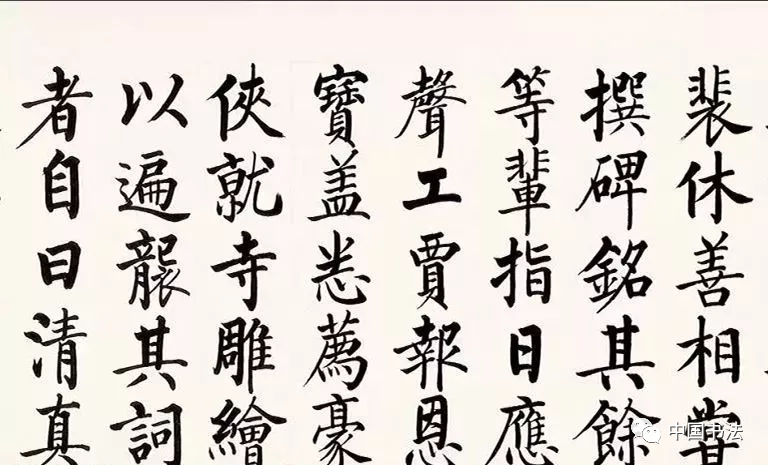 裴休善相
撰碑銘其餘
等輩指日應
聲工賈報恩
寶盖恙薦豪
俠就寺雕繪
以遍襲其詞
者自曰清真
中国书法